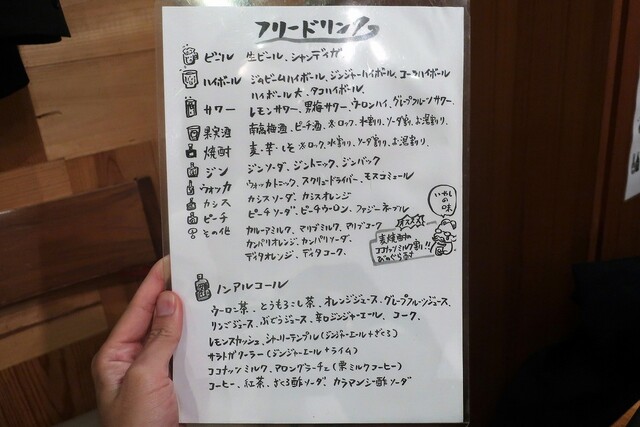 フリードリンク
ビール 生ビール、シャンディガフ
ハイボール ジムビームハイボール、ジンジャーハイボール、コークハイボール
ハイボール大、タコハイボール、
サワー レモンサワー、男梅サワー、ウーロンハイ、グレープフルーツサワー、
果実酒 南高梅酒、ピーチ酒、※ロック、水割り、ソーダ割り、お湯割り、
焼酎 麦・芋・しそ ※ロック、水割り、ソーダ割り、お湯割り、
ジン ジンソーダ、ジントニック、ジンバック
ウォッカ ウォッカトニック、スクリュードライバー、モスコミュール
カシス カシスソーダ、カシスオレンジ
ピーチ ピーチソーダ、ピーチウーロン、ファジーネーブル
その他 カルーアミルク、マリブミルク、マリブコーク
カンパリオレンジ、カンパリソーダ、
ディタオレンジ、ディタコーク、
いやしの味
オススメ
麦焼酎の
ココナッツミルク割り!!
ノンアルコール
ウーロン茶、とうもろこし茶、オレンジジュース、グレープフルーツジュース、
りんごジュース、ぶどうジュース、辛口ジンジャーエール、コーク、
レモンスカッシュ、シャーリーテンプル(ジンジャーエール+ざくろ)
サラトガクーラー(ジンジャーエール+ライム)
ココナッツミルク、マロングラーチェ(栗ミルクコーヒー)
コーヒー、紅茶、ざくろ酢ソーダ、カラマンシー酢ソーダ